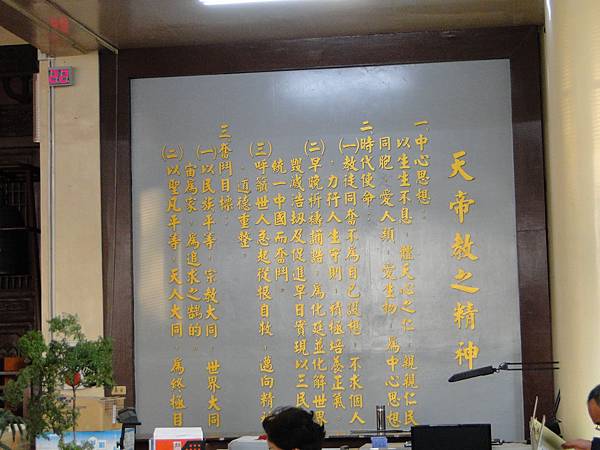 天帝教之精神
一、中心思想：
以生生不息，體天心之仁，親親仁民
同胞，愛人類，愛生物，為中心思想
二、時代使命：
㈠教徒同奮不為自己設想，不求個人
，力行人生守則，積極培養正氣。
㈡早晚祈禱誦誥，為化延並化解世界
毀滅浩劫及促進早日實現以三民
統一中國而奮鬥。
㈢呼籲世人急起從根自救，邁向精神
道德重整。
三、奮鬥目標：
㈠以民族平等，宗教大同，世界大同
宙為家，為追求之鵠的。
㈡以聖凡平等，天人大同，為終極目